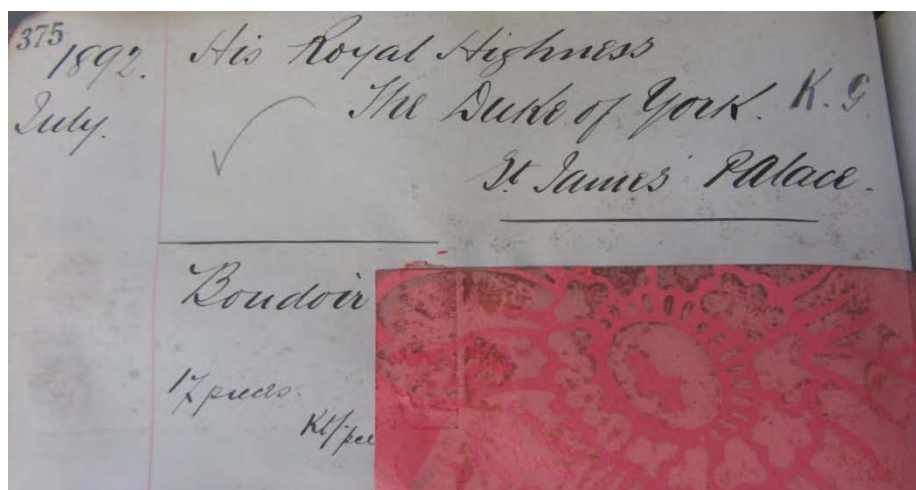 375
1892. His Royal Highness
July. The Duke of York. K. G.
St James' Palace.
Boudoir
17 pieces